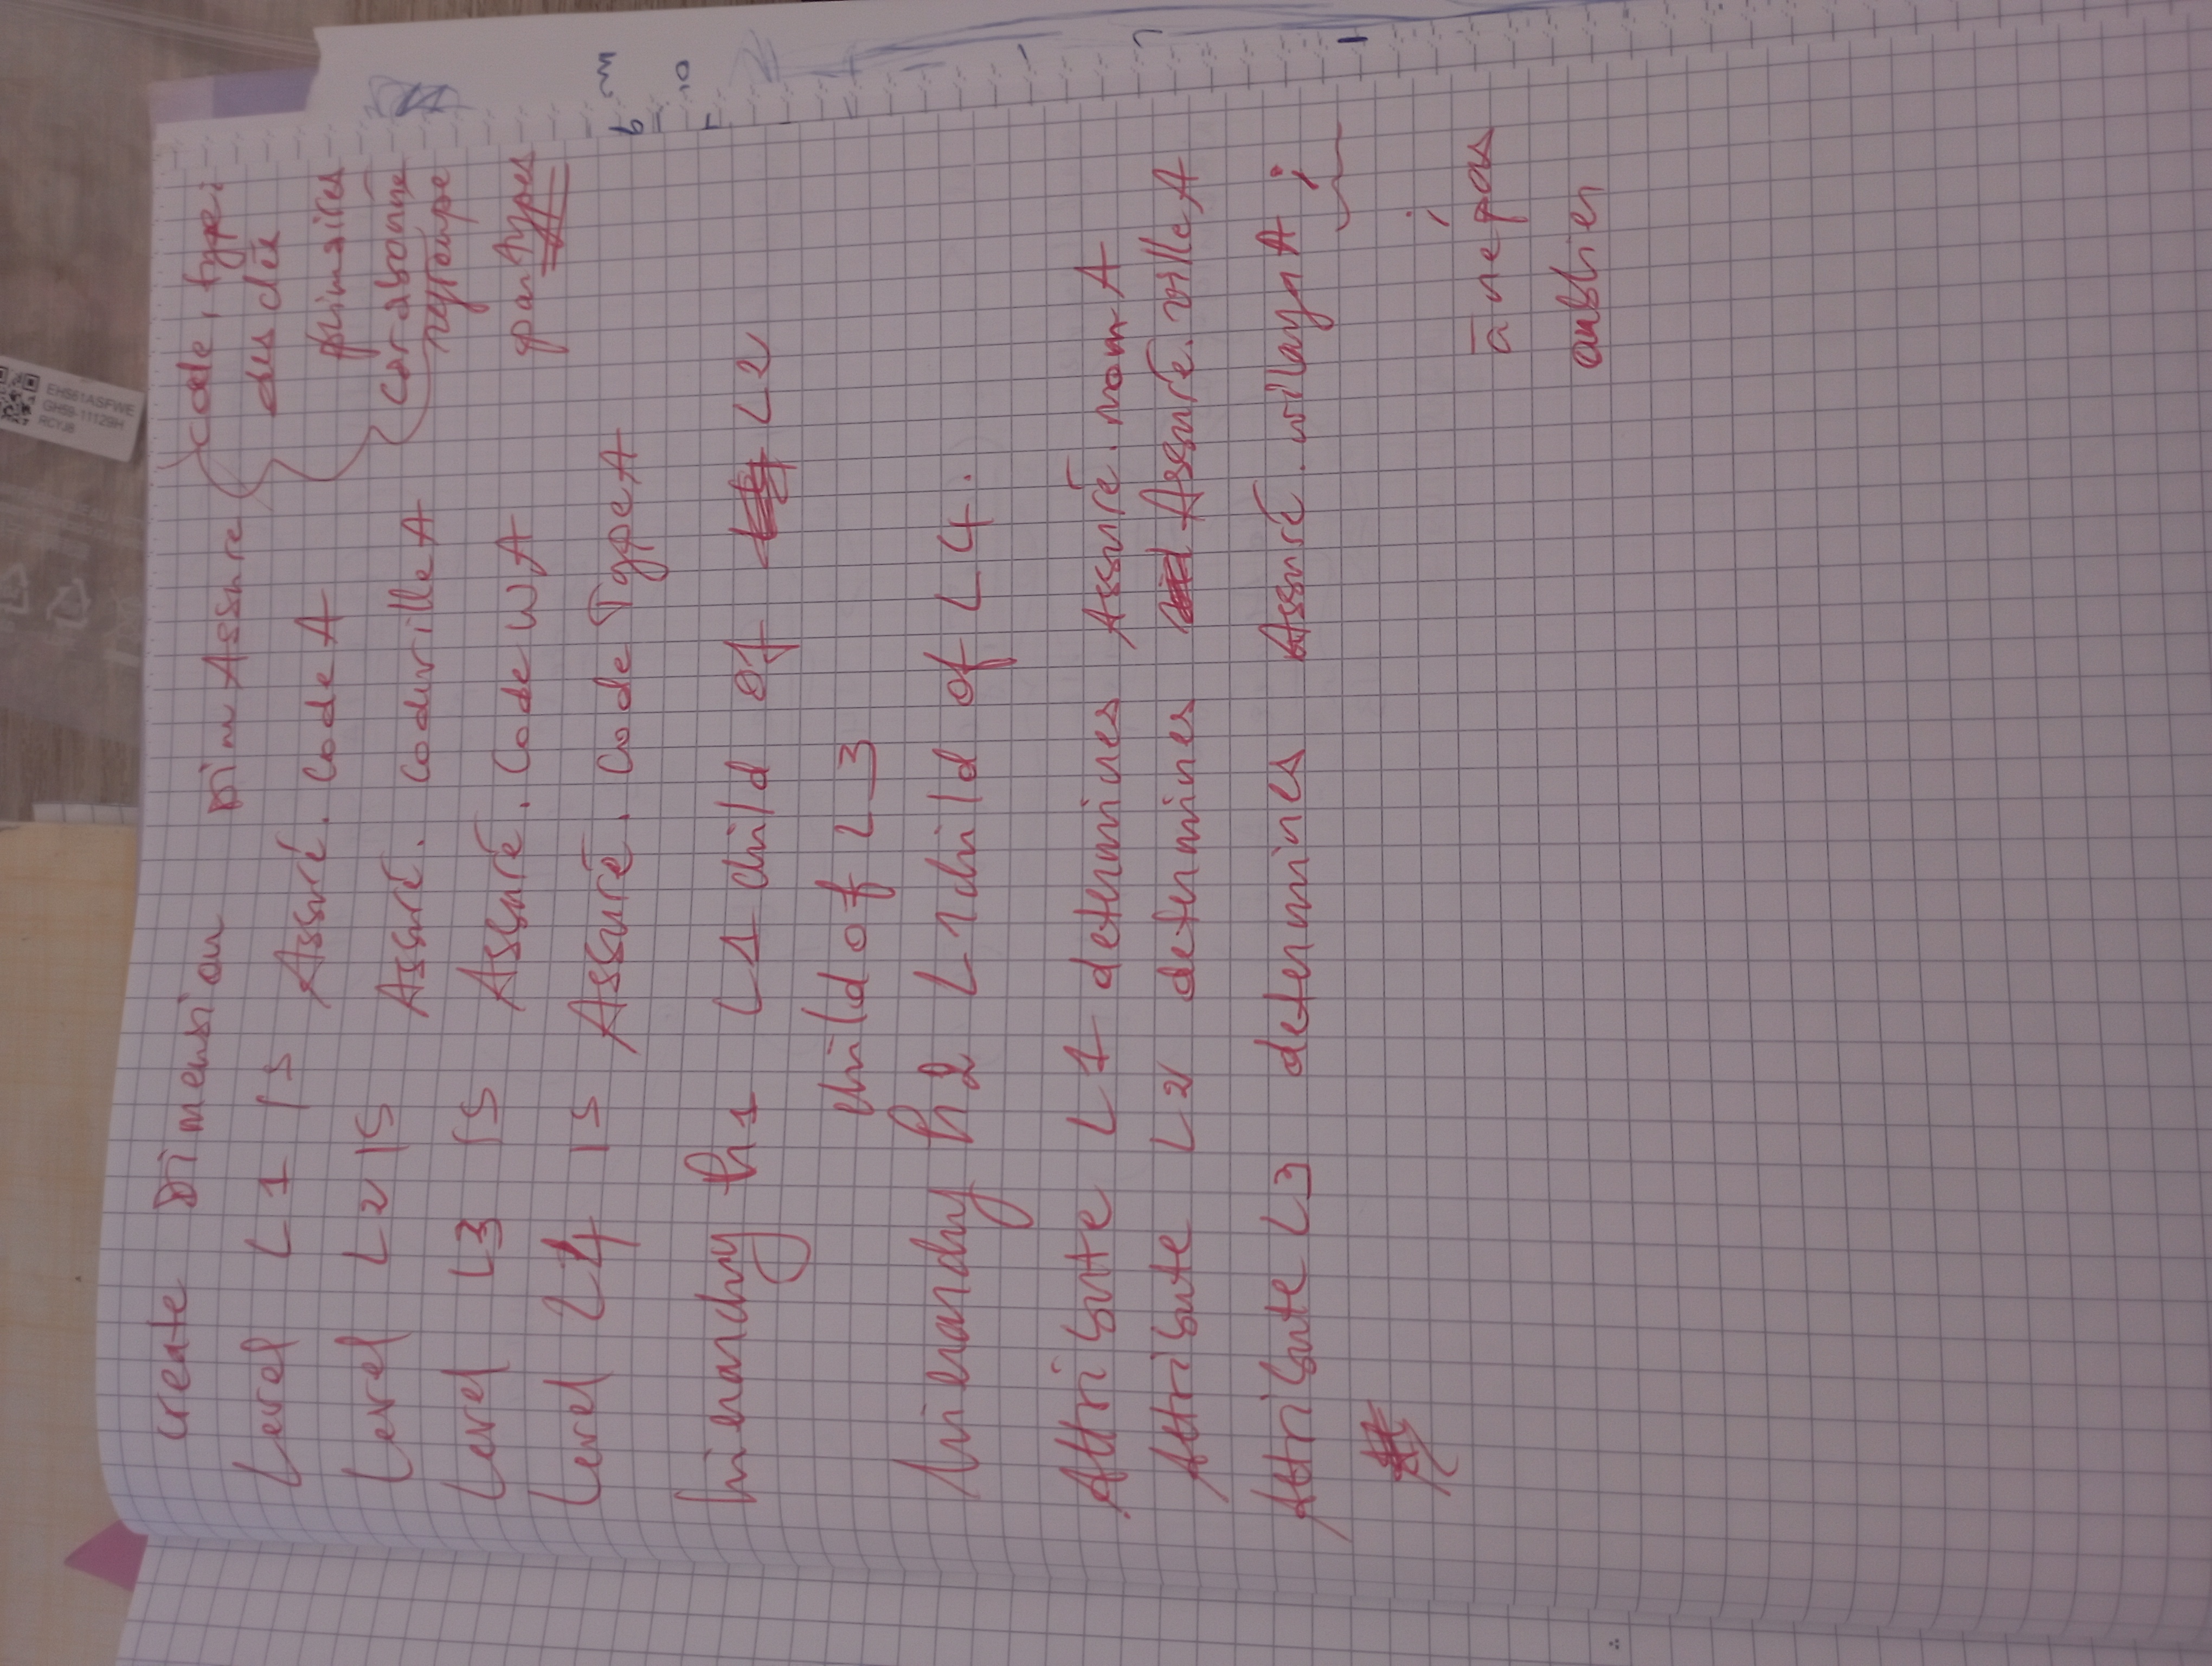 Create Dimension Dim Assure
Level L1 IS Assuré. Code A
Level L2 IS Assuré. CodevilleA
Level L3 IS Assuré. Code WA
Level L4 IS Assuré. Code TypeA
hierarchy h1 L1 child of L2
child of L3
hierarchy h2 L1 child of L4.
Attribute L1 determines Assuré. nom A
Attribute L2 determines Assuré. ville A
Attribute L3 determines Assuré. wilaya A ;
code, type:
des clés
primaires
car abonné
regroupe
par types
;
à ne pas
oublier